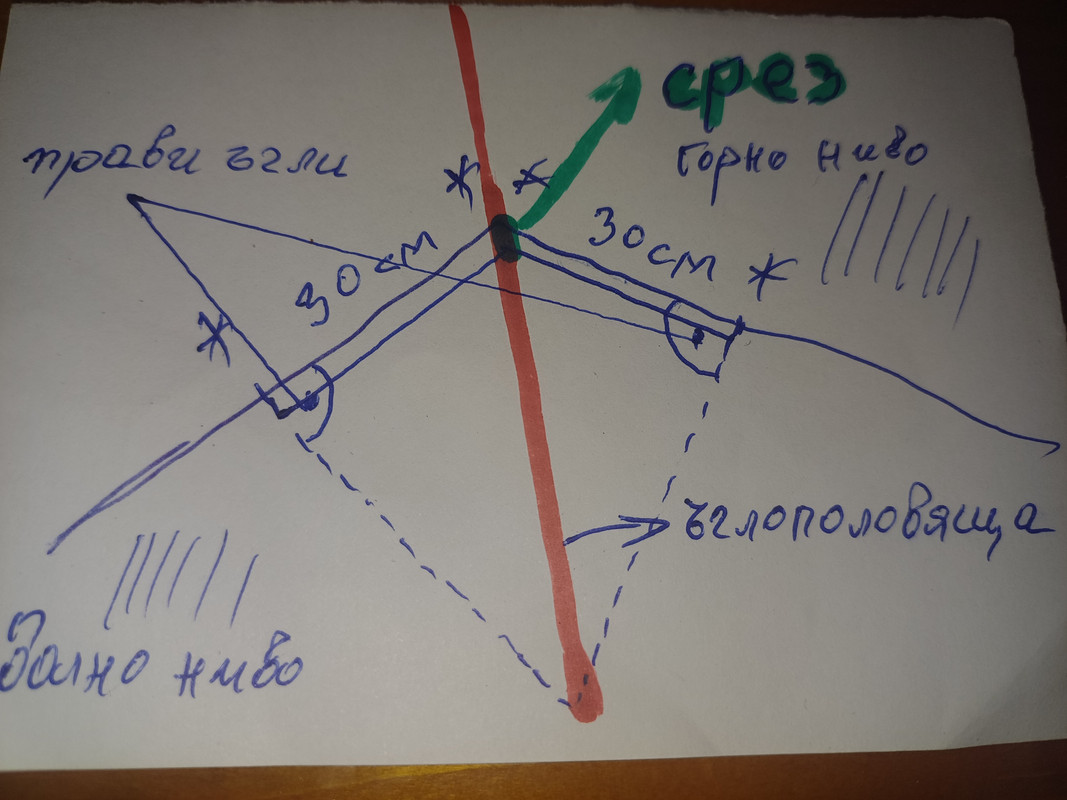 срез
прави ъгли
горно ниво
30 см
30 см
ъглополовяща
долно ниво